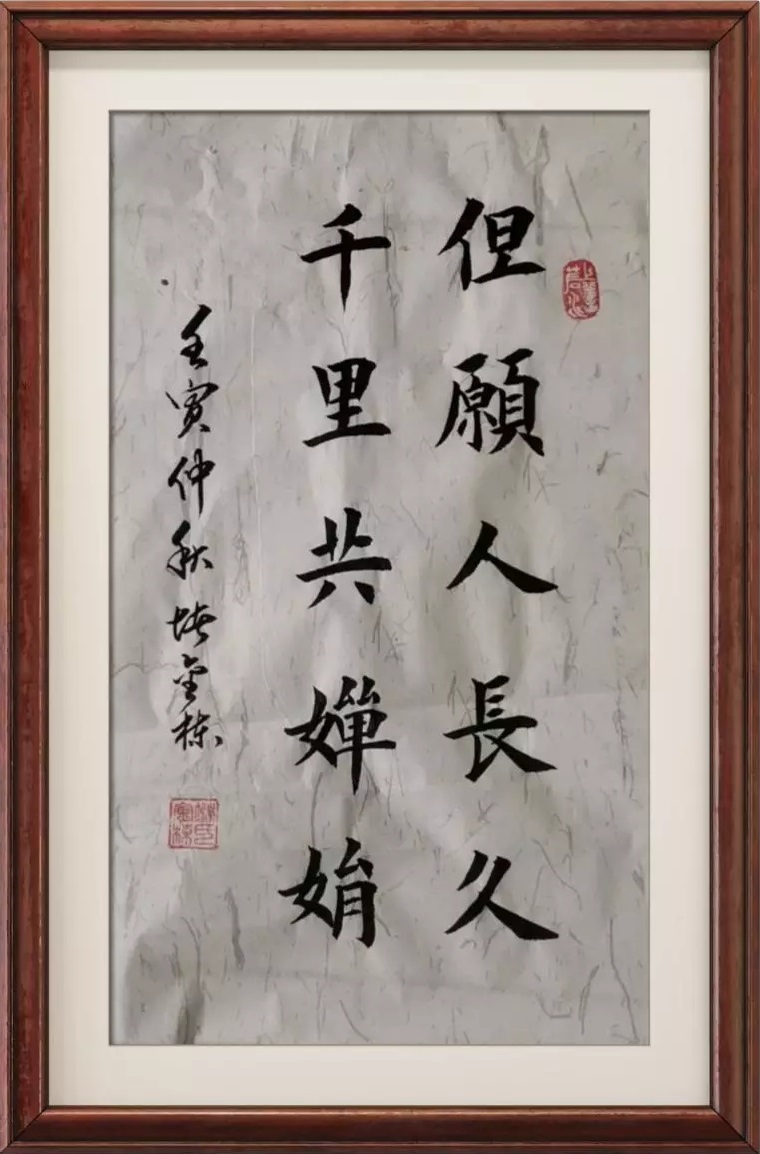 但願人長久
千里共嬋娟
壬寅仲秋 金棟